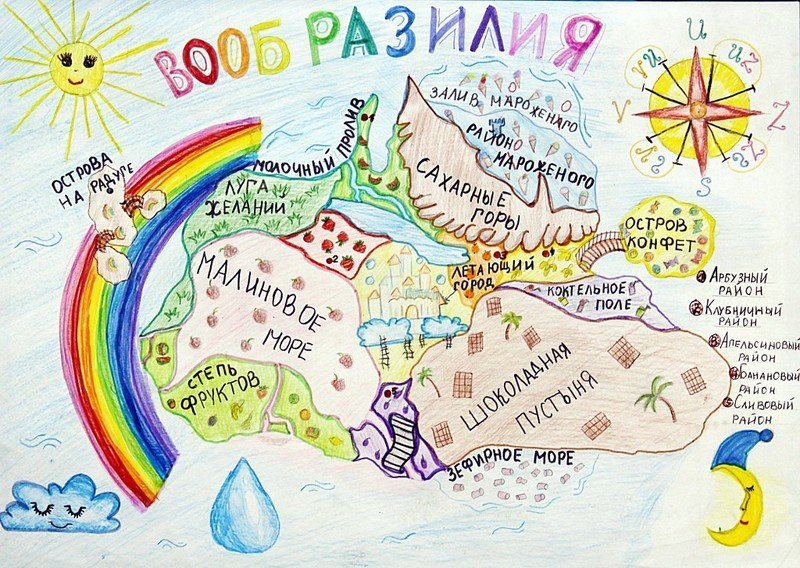 ВООБРАЗИЛИЯ
U
V
Z
S
ОСТРОВА
НА РАДУГЕ
МОЛОЧНЫЙ ПРОЛИВ
ЗАЛИВ МАРОЖЕНАГО
РАЙОН
МАРОЖЕНОГО
САХАРНЫЕ
ГОРЫ
ЛУГА
ЖЕЛАНИИ
ОСТРОВ
КОНФЕТ
МАЛИНОВОЕ
МОРЕ
2
ЛЕТАЮЩИЙ
ГОРОД
КОКТЕЛЬНОЕ
ПОЛЕ
АРБУЗНЫЙ
РАЙОН
КЛУБНИЧНЫЙ
РАЙОН
АПЕЛЬСИНОВЫЙ
РАЙОН
БАНАНОВЫЙ
РАЙОН
СЛИВОВЫЙ
РАЙОН
СТЕПЬ
ФРУКТОВ
ШОКОЛАДНАЯ
ПУСТЫНЯ
ЗЕФИРНОЕ МОРЕ